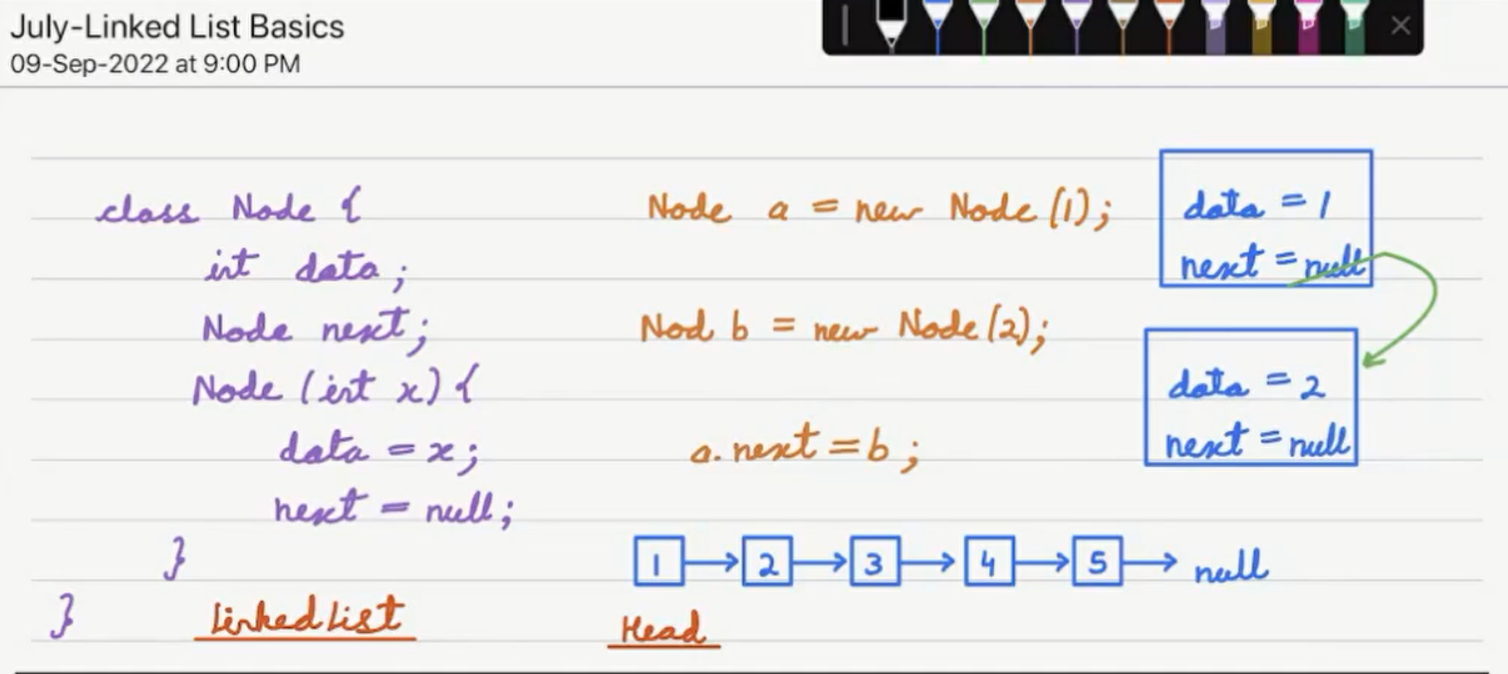 July-Linked List Basics
09-Sep-2022 at 9:00 PM
class Node {
int data;
Node next;
Node (int x) {
data = x;
next = null;
}
}
Linked List
Node a = new Node (1);
Nod b = new Node (2);
a.next = b;
data = 1
next = null
data = 2
next = null
1 → 2 → 3 → 4 → 5 → null
Head